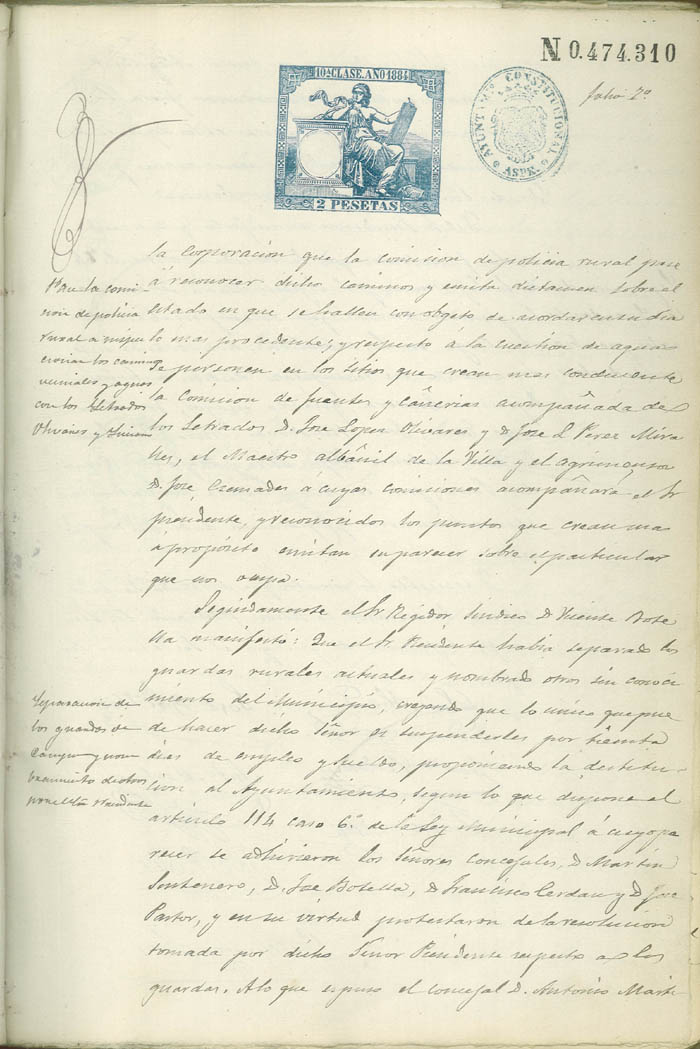 N 0.474.310
10ª CLASE. AÑO 1884
2 PESETAS
AYUNTAM.TO CONSTITUCIONAL
ASPE.
folio 2º
la Corporacion que la Comision de policia rural pase
á reconocer dichos caminos y emita dictamen sobre el
estado en que se hallen con objeto de acordar en su dia
lo mas procedente; y respecto á la cuestion de aguas
se personen en los sitios que crean mas conducente
la Comision de fuentes y Cañerias acompañada de
los Letrados D. Jose Lopez Olivares y D. Jose L Perez Mira
lles, el Maestro albañil de la Villa y el agrimensor
D. José Cremades á cuyas comisiones acompañará el Sr
presidente, y reconocidos los puntos que crean mas
apropósito emitan su parecer sobre el particular
que nos ocupa.
Seguidamente el Sr Regidor Sindico D. Vicente Bote
lla manifestó: Que el Sr. Presidente habia separado los
guardas rurales actuales y nombrado otros sin conoci
miento del Municipio, creyendo que lo unico que pue
de hacer dicho Señor es suspenderles por treinta
dias de empleo y sueldo, proponiendo la destitu-
cion al Ayuntamiento, segun lo que dispone el
artículo 114 caso 6º de la Ley Municipal á cuyo pa
recer se adhirieron los Señores Concejales, D. Martin
Sontenero, D. Jose Botella, D. Francisco Cerdan y D. Jose
Pastor, y en su virtud protestaron de la resolucion
tomada por dicho Señor Presidente respecto a los
guardas. A lo que espuso el concejal D. Antonio Marti
la comi
sion de policia
rural á
los caminos
vecinales y aguas
con los Letrados
Olivares y
Separacion de
los guardas de
Campo y nom
bramiento de otros
por el Sr Presidente